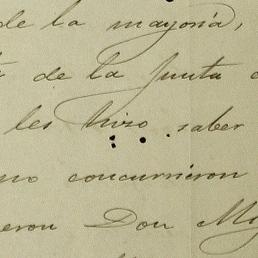 de la mayoría,
de la Junta
les hizo saber
no concurrieron
eron Don Mig